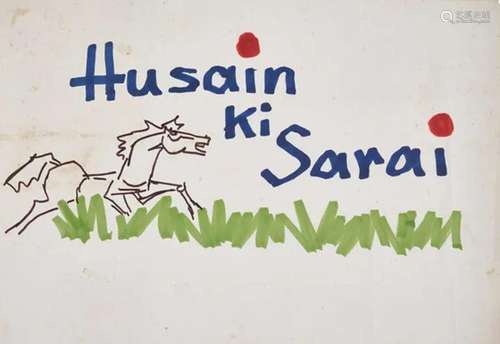 Husain
Ki
Sarai